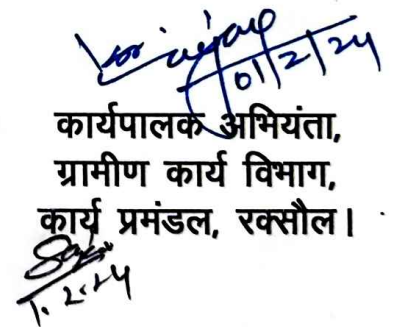 01/2/24
कार्यपालक अभियंता,
ग्रामीण कार्य विभाग,
कार्य प्रमंडल, रक्सौल।
1.2.24